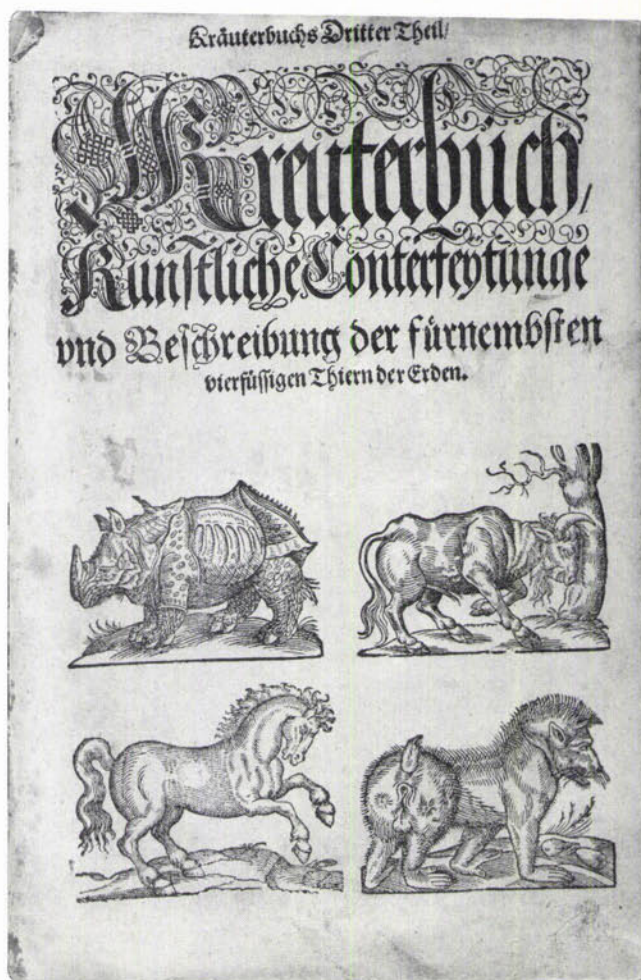 Kräuterbuchs Dritter Theil/
Kreuterbuch/
Kunstliche Conterfeytunge
vnd Beschreibung der fürnembsten
vierfüssigen Thiern der Erden.